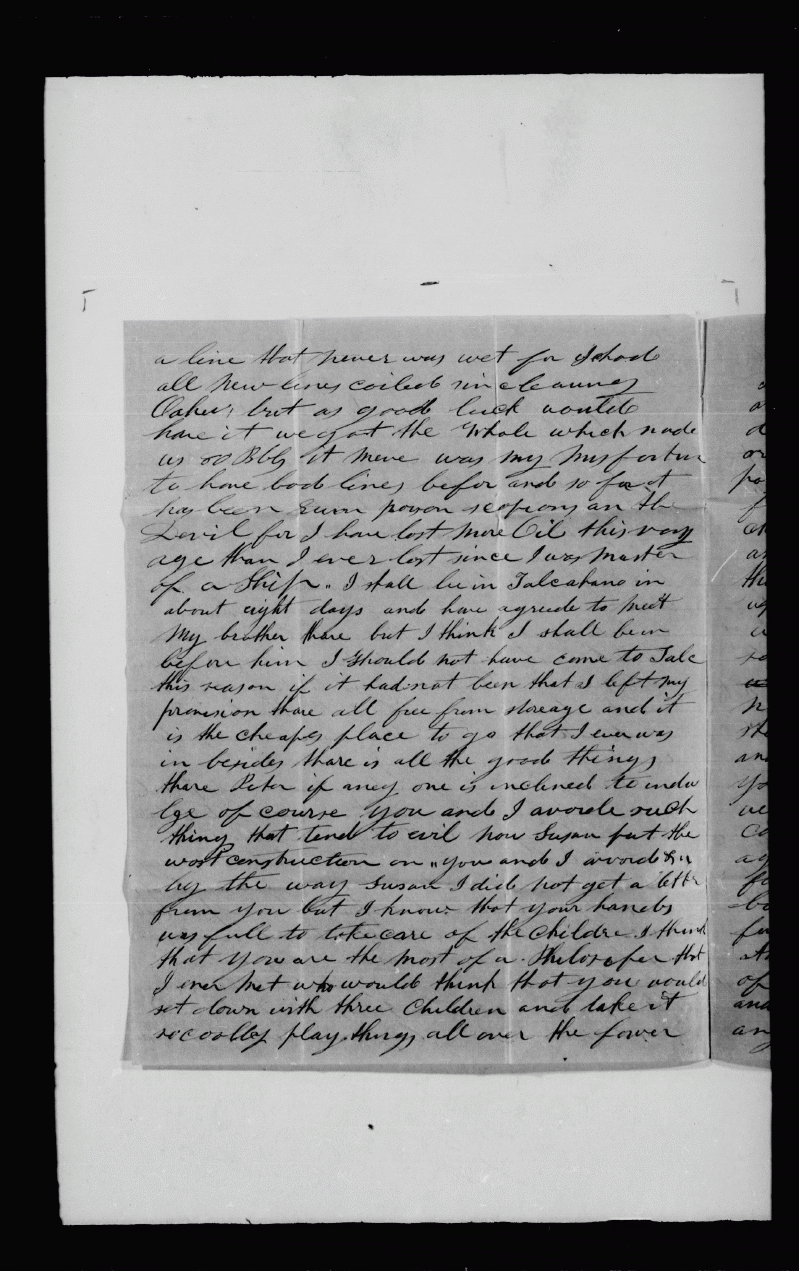 a line that never was wet for I had
all new lines coiled since leaving
Oahu, but as good luck would
have it we got the Whale which made
us 80 Bbls it mere was my misfortun
to have bad lines befor and so far it
has been on the
Devil for I have lost more Oil this voy
age than I ever lost since I was Master
of a Ship. I shall be in Talcahano in
about eight days and have agreede to meet
my brother thare but I think I shall been
before him I should not have come to Talc
this season if it had not been that I left my
provision thare all free from storeage and it
is the cheapes place to go that I ever was
in besides thare is all the good things
thare Peter if aney one is inclined to indu
lge of course you and I avorde such
things that tend to evil now Susan put the
worst construction on "you and I avord &c"
by the way Susan I did not get a letter
from you but I know that your hands
was full to take care of the childre I think
that you are the most of a Philosofer that
I ever met who would think that you would
set down with three Children and take it
so coolley play things all over the fower